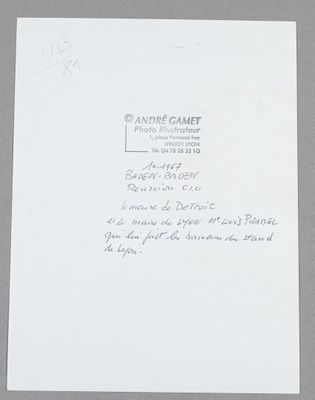 UB
81
© ANDRÉ GAMET
Photo Illustrateur
1, place Fernand Rey
69001 LYON
Tél. 04 78 28 32 10
1967
BADEN-BADEN
Reunion C.I.O
le maire de DETROIT
et le maire de LYON Mr LOUIS PRADEL
qui lui fait les honneurs du stand
de Lyon.